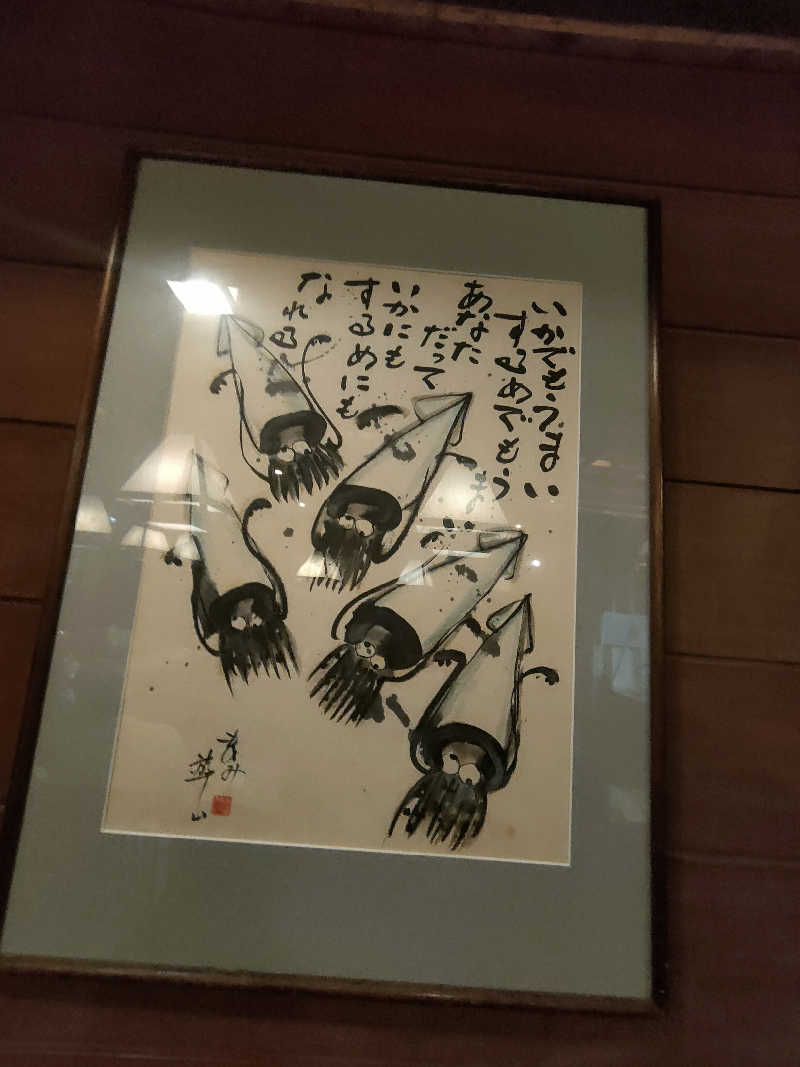 いかでもうまい
するめでもうまい
あなた
だって
いかにも
するめにも
なれる